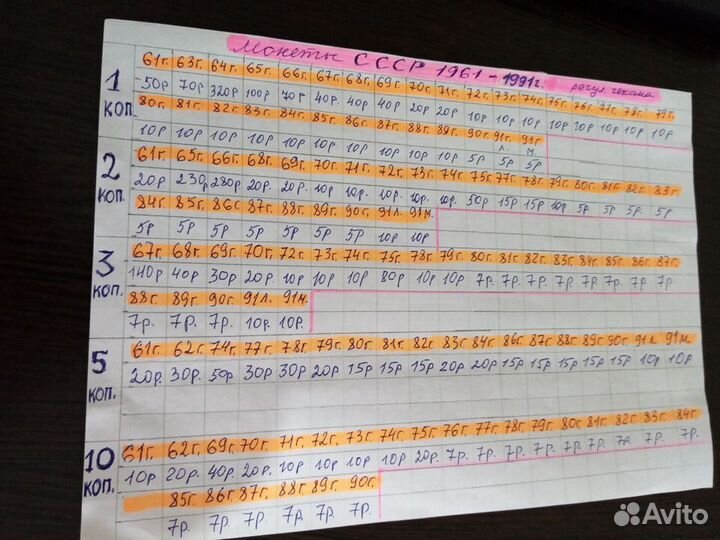 Монеты СССР 1961-1991г. регул. чекана
1 коп.
61г. 63г. 64г. 65г. 66г. 67г. 68г. 69г. 70г. 71г. 72г. 73г. 74г. 75г. 76г. 77г. 78г. 79г.
50р 70р 320р 100р 70р 40р. 40р. 40р 20р 20р 10р 10р 10р 10р 10р 10р 10р 10р
80г. 81г. 82г. 83г. 84г. 85г. 86г. 87г. 88г. 89г. 90г. 91г. 91г
Л. М.
10р 10р 10р 10р 10р 10р 10р 10р 10р 10р 5р 5р 5р
2 коп.
61г. 65г. 66г. 68г. 69г. 70г. 71г. 72г. 73г. 74г. 75г. 77г. 78г. 79г. 80г. 81г. 82г. 83г
20р 230р 280р 20р. 20р. 10р 10р. 10р. 10р. 10р. 50р 15р 15р 10р 5р. 5р. 5р. 5р
84г. 85г. 86г 87г. 88г. 89г. 90г. 91л. 91м.
5р 5р 5р 5р. 5р. 5р. 5р. 10р 10р
3 коп.
67г. 68г. 69г. 70г. 72г. 73г. 74г. 75г. 78г. 79г. 80г. 81г. 82г. 83г. 84г. 85г. 86г. 87г.
140р 40р. 30р 20р. 10р 10р 10р 80р 10р 10р 7р. 7р. 7р. 7р. 7р. 7р. 7р. 7р.
88г. 89г. 90г. 91л. 91м.
7р. 7р. 7р. 10р. 10р.
5 коп.
61г. 62г. 74г. 77г. 78г. 79г. 80г. 81г. 82г. 83г. 84г. 86г. 87г. 88г. 89г. 90г. 91л. 91м.
20р. 30р. 50р 30р 30р 20р 15р 15р 15р 20р 20р 15р 15р 15р 15р 15р 10р 10р
10 коп.
61г. 62г. 69г. 70г. 71г. 72г. 73г. 74г. 75г. 76г. 77г. 78г. 79г. 80г. 81г. 82г. 83г. 84г.
10р 20р. 40р. 20р. 10р 10р 10р. 10р 20р. 7р. 7р. 7р. 7р. 7р. 7р. 7р. 7р. 7р.
85г. 86г 87г. 88г. 89г. 90г.
7р. 7р. 7р. 7р. 7р. 7р.
Avito